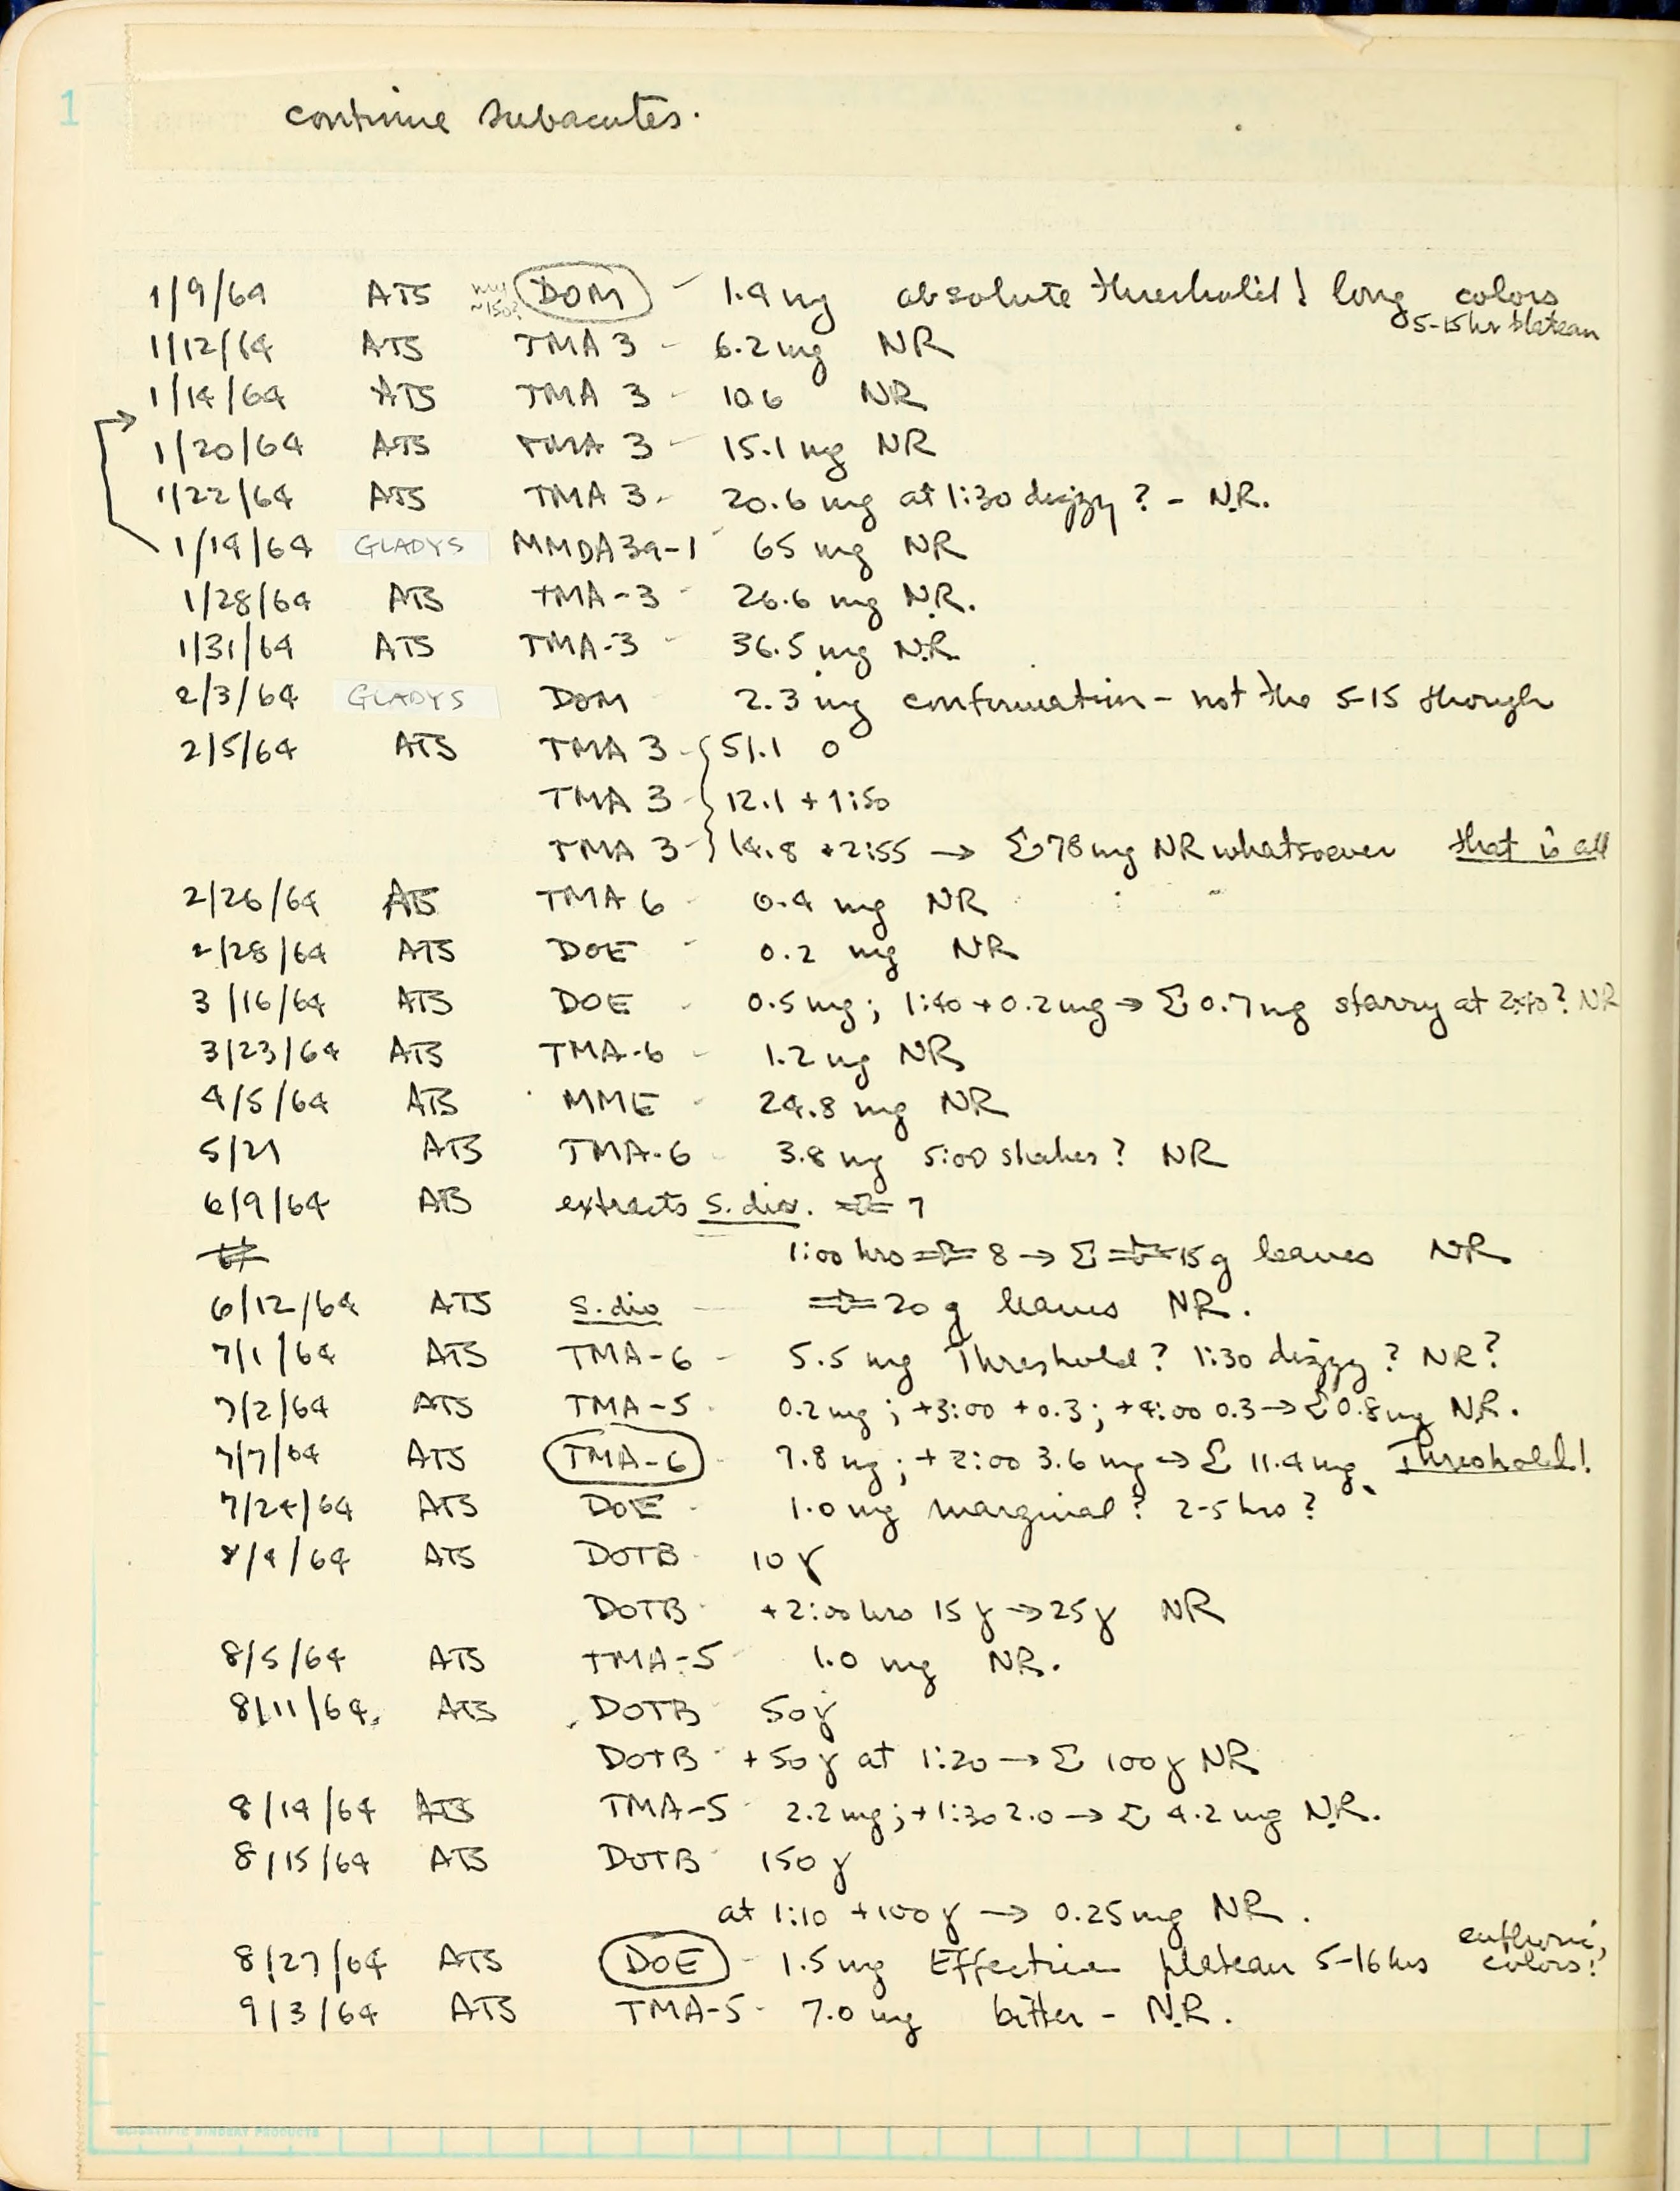 1
continue subacutes.
1/9/64 ATS DOM - 1.4 mg absolute threshold! long colors
5-15 hr plateau
1/12/64 ATS TMA 3 - 6.2 mg NR
1/14/64 ATS TMA 3 - 10.6 NR
1/20/64 ATS TMA 3 - 15.1 mg NR
1/22/64 ATS TMA 3 - 20.6 mg at 1:30 dizzy? - N.R.
1/14/64 GLADYS MMDA3a-1 65 mg NR
1/28/64 ATS TMA-3 - 26.6 mg N.R.
1/31/64 ATS TMA-3 - 36.5 mg N.R.
2/3/64 GLADYS DOM 2.3 mg confirmation - not the 5-15 though
2/5/64 ATS TMA 3 - { 51.1 0
TMA 3 - } 12.1 + 1:50
TMA 3 - } 14.8 + 2:55 → Σ 78 mg NR whatsoever that is all
2/26/64 ATS TMA 6 - 0.4 mg NR
2/28/64 ATS DOE - 0.2 mg NR
3/16/64 ATS DOE - 0.5 mg; 1:40 + 0.2 mg → Σ 0.7 mg starry at 2:40? NR
3/23/64 ATS TMA-6 - 1.2 mg NR
4/5/64 ATS MME - 24.8 mg NR
5/21 ATS TMA-6 - 3.8 mg 5:00 shakes? NR
6/9/64 ATS extracts S. div. 7
1:00 hrs 8 → Σ 15 g leaves NR
6/12/64 ATS S. div - 20 g leaves NR.
7/1/64 ATS TMA-6 - 5.5 mg Threshold? 1:30 dizzy? NR?
7/2/64 ATS TMA-5 - 0.2 mg; +3:00 +0.3; +4:00 0.3 → Σ 0.8 mg N.R.
7/7/64 ATS TMA-6 - 7.8 mg; + 2:00 3.6 mg → Σ 11.4 mg Threshold!
7/24/64 ATS DOE - 1.0 mg marginal? 2-5 hrs?
8/4/64 ATS DOTB - 10 γ
DOTB - +2:00 hrs 15 γ → 25 γ NR
8/5/64 ATS TMA-5 - 1.0 mg NR.
8/11/64 ATS DOTB 50 γ
DOTB - +50 γ at 1:20 → Σ 100 γ NR
8/14/64 ATS TMA-5 - 2.2 mg; +1:30 2.0 → Σ 4.2 mg N.R.
8/15/64 ATS DOTB - 150 γ
at 1:10 +100 γ → 0.25 mg NR.
8/27/64 ATS DOE - 1.5 mg Effective plateau 5-16 hrs euphoric, colors!
9/3/64 ATS TMA-5 - 7.0 mg bitter - N.R.
SCIENTIFIC BINDERY PRODUCTS